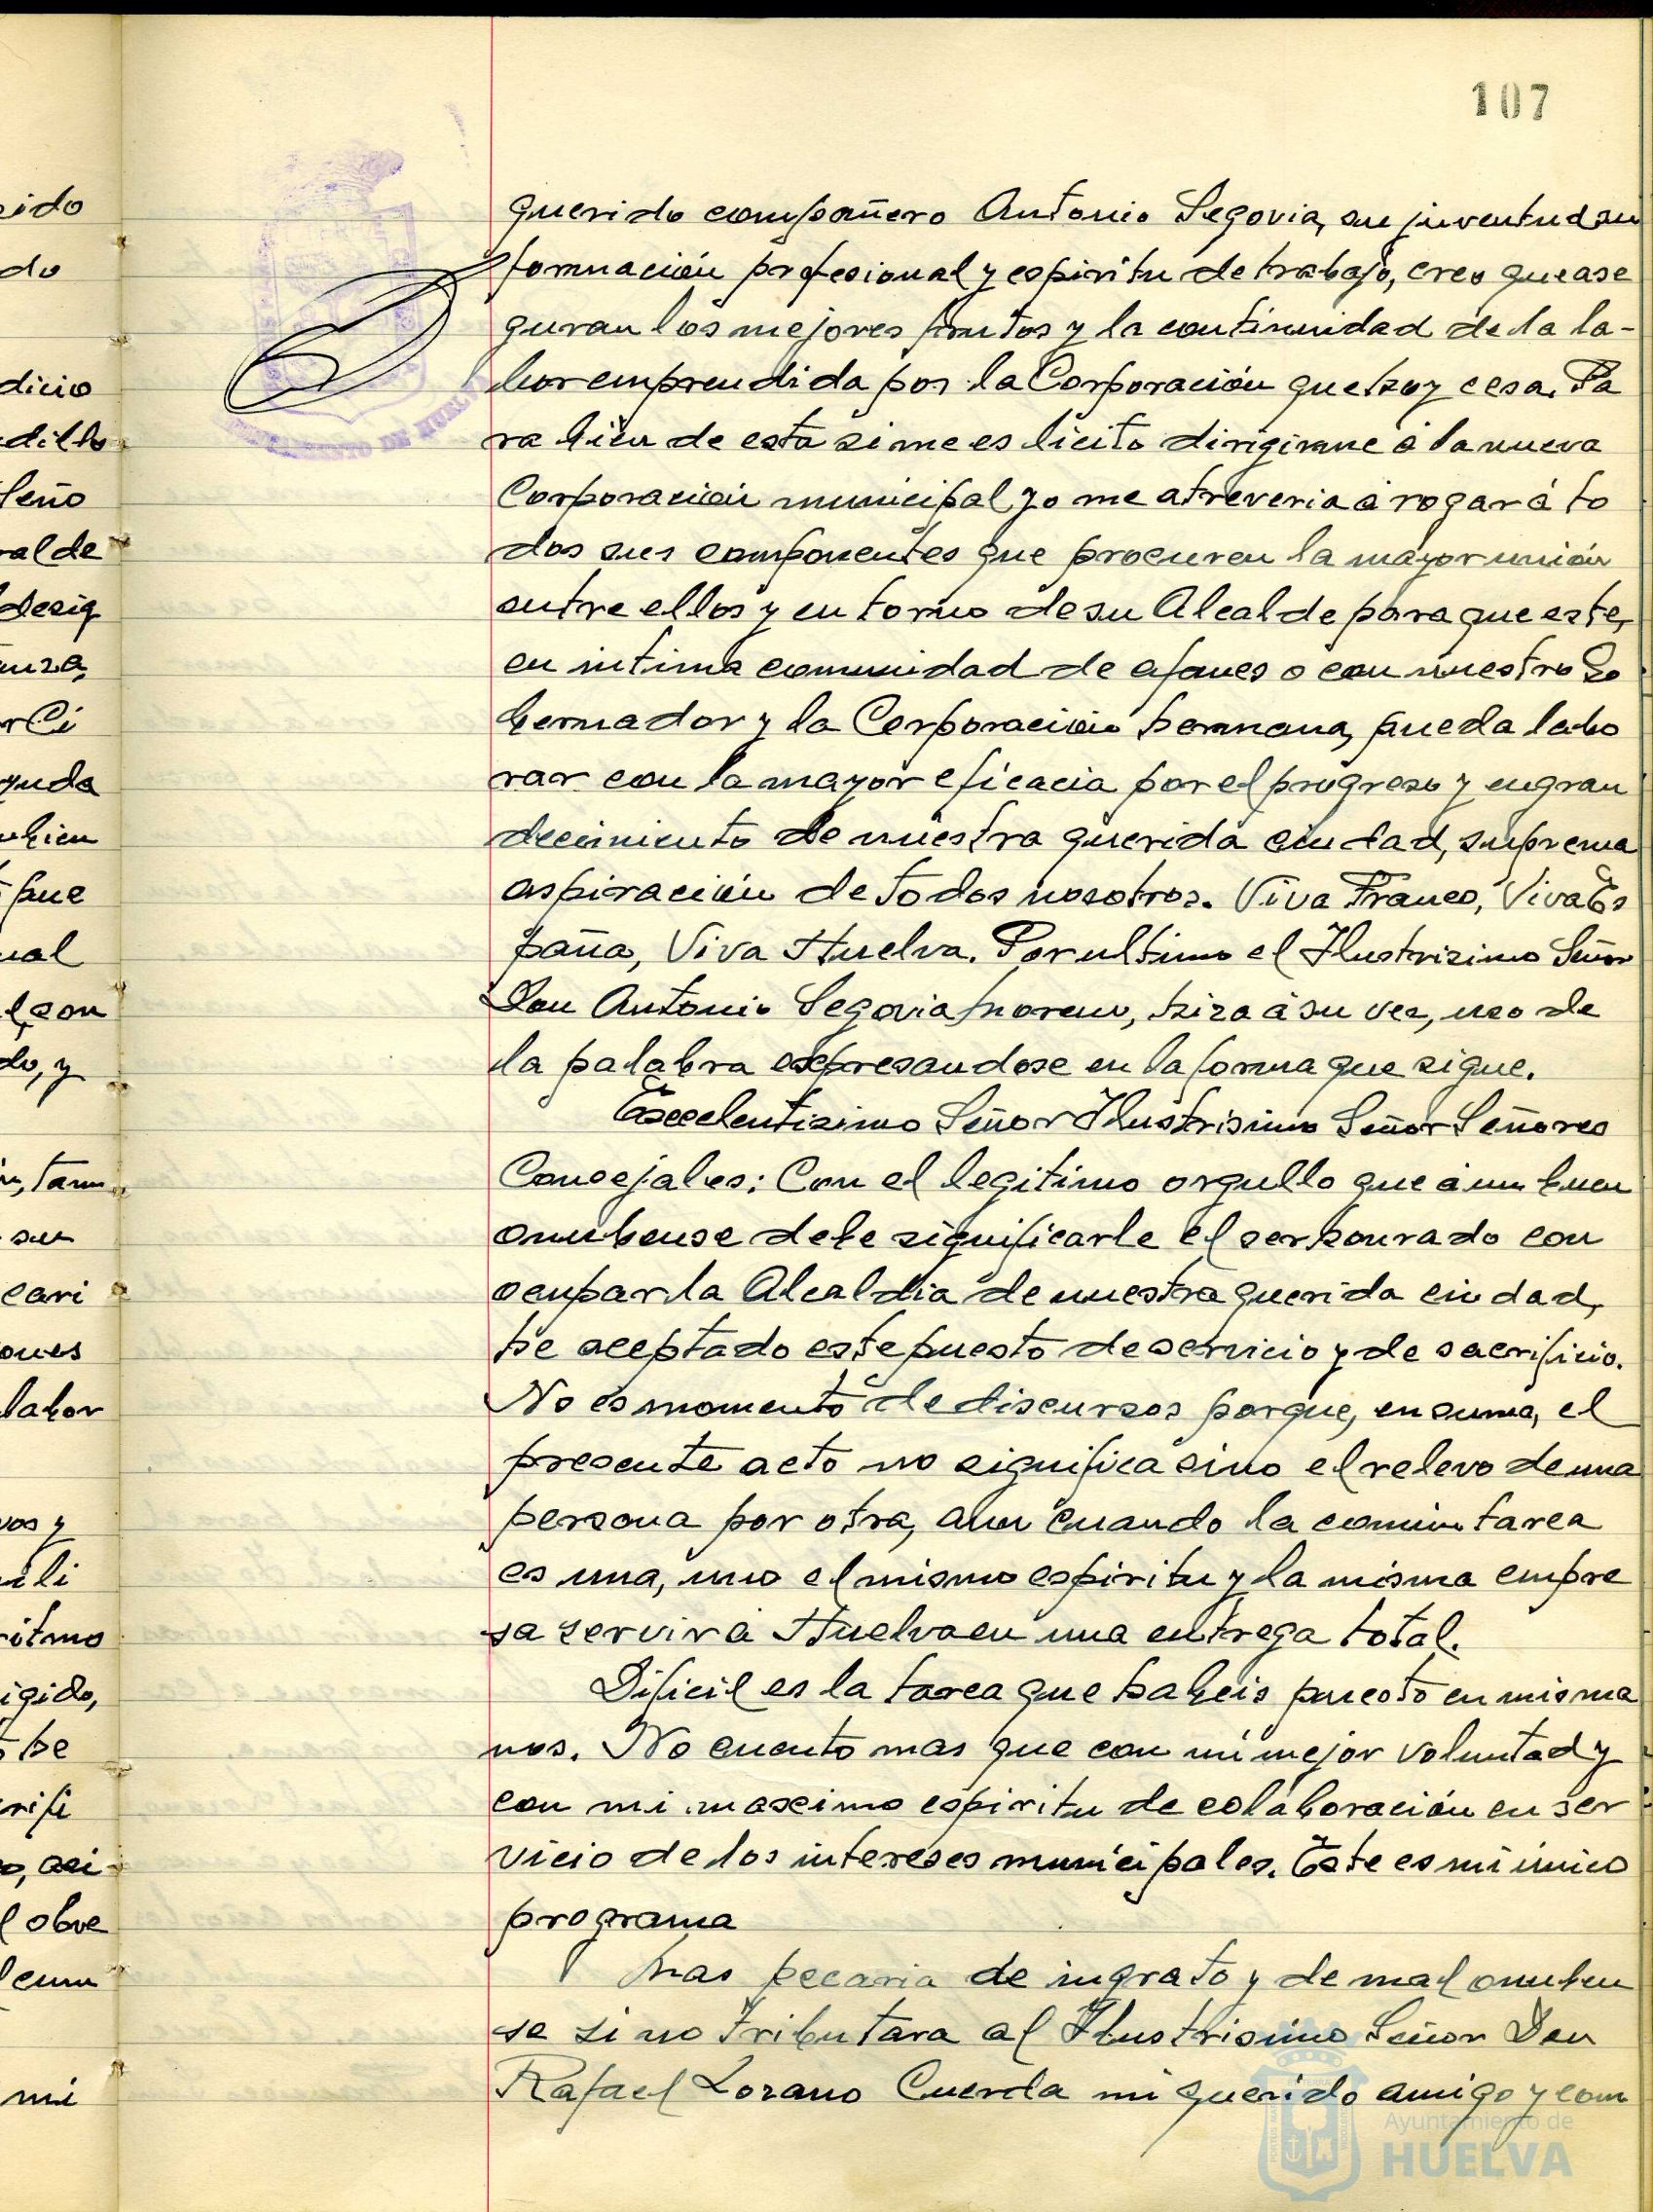 107
querido compañero Antonio Segovia, su juventud su
formación profesional y espiritu de trabajo, creo que ase
guran los mejores frutos y la continuidad de la la-
bor emprendida por la Corporación que hoy cesa. Pa
ra bien de esta si me es licito dirigirme á la nueva
Corporación municipal yo me atreveria á rogar á to
dos sus componentes que procuren la mayor unión
entre ellos y en torno de su Alcalde para que este,
en intima comunidad de afanes o con nuestro Go
bernador y la Corporación hermana, pueda labo
rar con la mayor eficacia por el progreso y engran
decimiento de nuestra querida ciudad, suprema
aspiración de todos nosotros. Viva Franco, Viva Es
paña, Viva Huelva. Por ultimo el Ilustrisimo Señor
Don Antonio Segovia Moreno, hizo á su vez, uso de
la palabra expresandose en la forma que sigue.
Excelentisimo Señor Ilustrisimo Señor Señores
Concejales: Con el legitimo orgullo que á un buen
onubense debe significarle el ser honrado con
ocupar la Alcaldia de nuestra querida ciudad,
he aceptado este puesto de servicio y de sacrificio.
No es momento de discursos porque, en suma, el
presente acto no significa sino el relevo de una
persona por otra, aun cuando la comun tarea
es una, uno el mismo espiritu y la misma empre
sa servir á Huelva en una entrega total.
Dificil es la tarea que habeis puesto en mis ma
nos. No cuento mas que con mi mejor voluntad y
con mi maximo espiritu de colaboración en ser
vicio de los intereses municipales. Este es mi único
programa
Mas pecaria de ingrato y de mal onuben
se si no tributara al Ilustrisimo Señor Don
Rafael Lozano Cuerda mi querido amigo y com
Ayuntamiento de
HUELVA